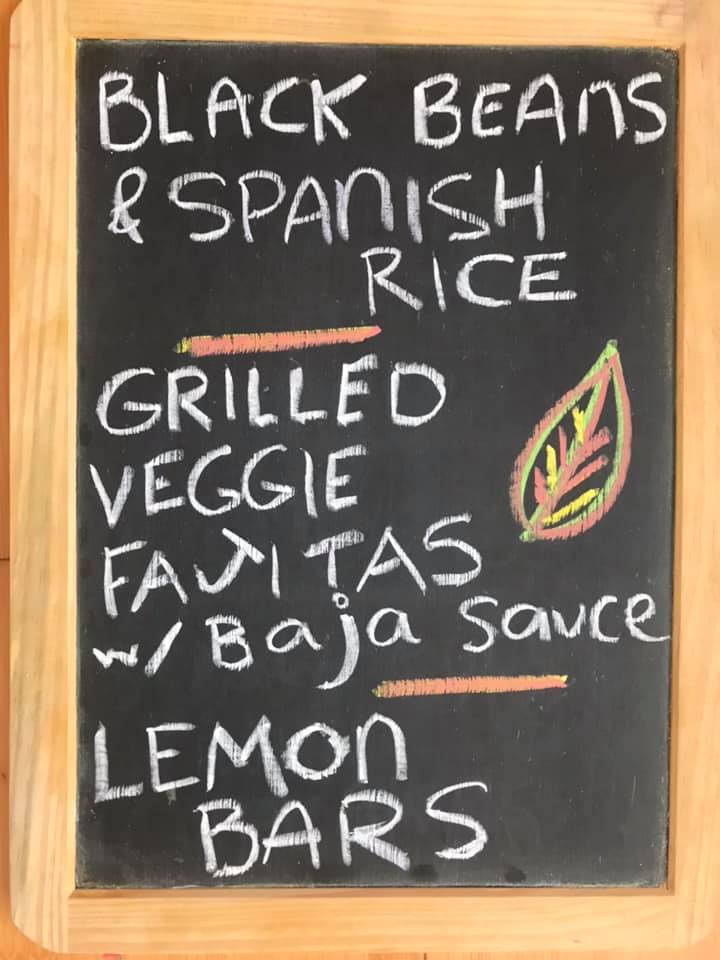 BLACK BEANS
& SPANISH
RICE
GRILLED
VEGGIE
FAJITAS
w/ Baja Sauce
LEMON
BARS